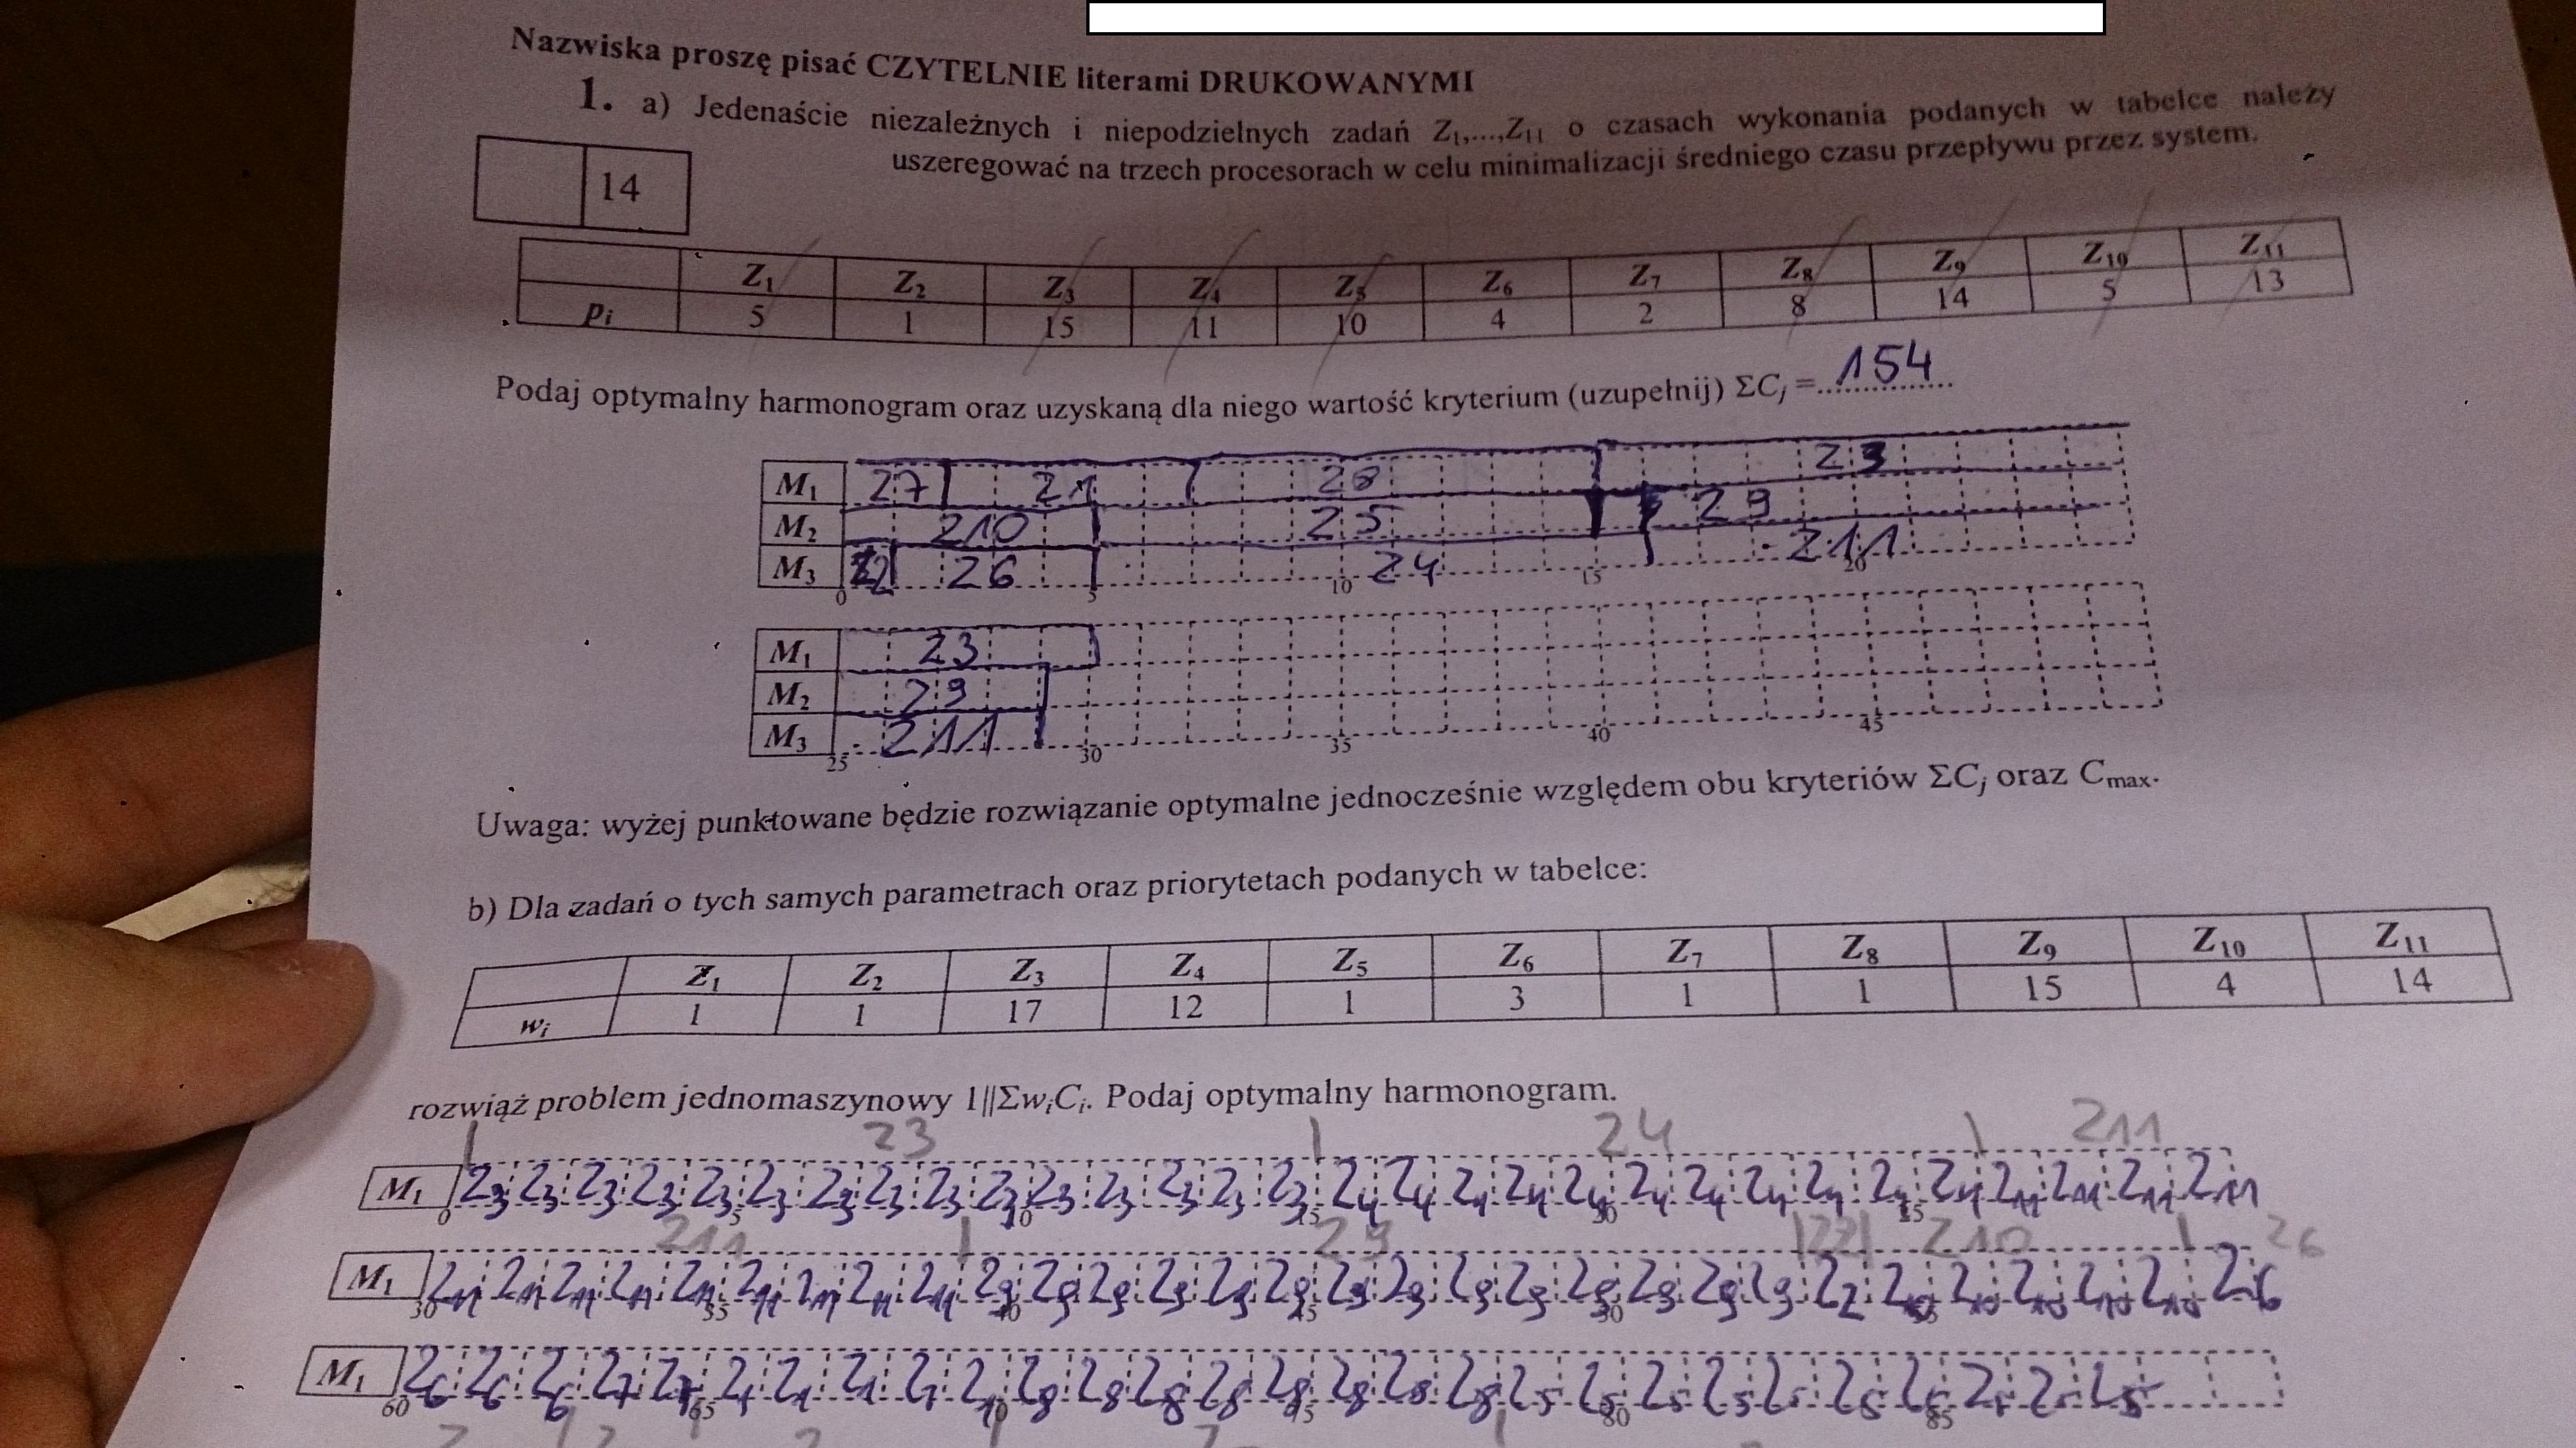 Nazwiska proszę pisać CZYTELNIE literami DRUKOWANYMI
1. a) Jedenaście niezależnych i niepodzielnych zadań Z1,...,Z11 o czasach wykonania podanych w tabelce należy
14 uszeregować na trzech procesorach w celu minimalizacji średniego czasu przepływu przez system.
Z1 Z2 Z3 Z4 Z5 Z6 Z7 Z8 Z9 Z10 Z11
pi 5 1 15 11 10 4 2 8 14 5 13
Podaj optymalny harmonogram oraz uzyskaną dla niego wartość kryterium (uzupełnij) ΣCj =..............154
M1 Z7 Z1 Z8 Z3
M2 Z10 Z5 Z9
M3 Z2 Z6 Z4 Z11
0 5 10 15 20
M1 Z3
M2 Z9
M3 Z11
25 30 35 40 45
Uwaga: wyżej punktowane będzie rozwiązanie optymalne jednocześnie względem obu kryteriów ΣCj oraz Cmax.
b) Dla zadań o tych samych parametrach oraz priorytetach podanych w tabelce:
Z1 Z2 Z3 Z4 Z5 Z6 Z7 Z8 Z9 Z10 Z11
wi 1 1 17 12 1 3 1 1 15 4 14
rozwiąż problem jednomaszynowy 1||ΣwiCi. Podaj optymalny harmonogram.
Z3 Z4 Z11
M1 Z3 Z3 Z3 Z3 Z3 Z3 Z3 Z3 Z3 Z3 Z3 Z3 Z3 Z3 Z3 Z4 Z4 Z4 Z4 Z4 Z4 Z4 Z4 Z4 Z4 Z4 Z11 Z11 Z11 Z11
0 5 10 15 20 25
Z11 Z9 Z2 Z10 Z6
M1 Z11 Z11 Z11 Z11 Z11 Z11 Z11 Z11 Z11 Z9 Z9 Z9 Z9 Z9 Z9 Z9 Z9 Z9 Z9 Z9 Z9 Z9 Z9 Z2 Z10 Z10 Z10 Z10 Z10 Z6
30 35 40 45 50 55
M1 Z6 Z6 Z6 Z7 Z7 Z1 Z1 Z1 Z1 Z1 Z8 Z8 Z8 Z8 Z8 Z8 Z8 Z8 Z5 Z5 Z5 Z5 Z5 Z5 Z5 Z5 Z5 Z5
60 65 70 75 80 85